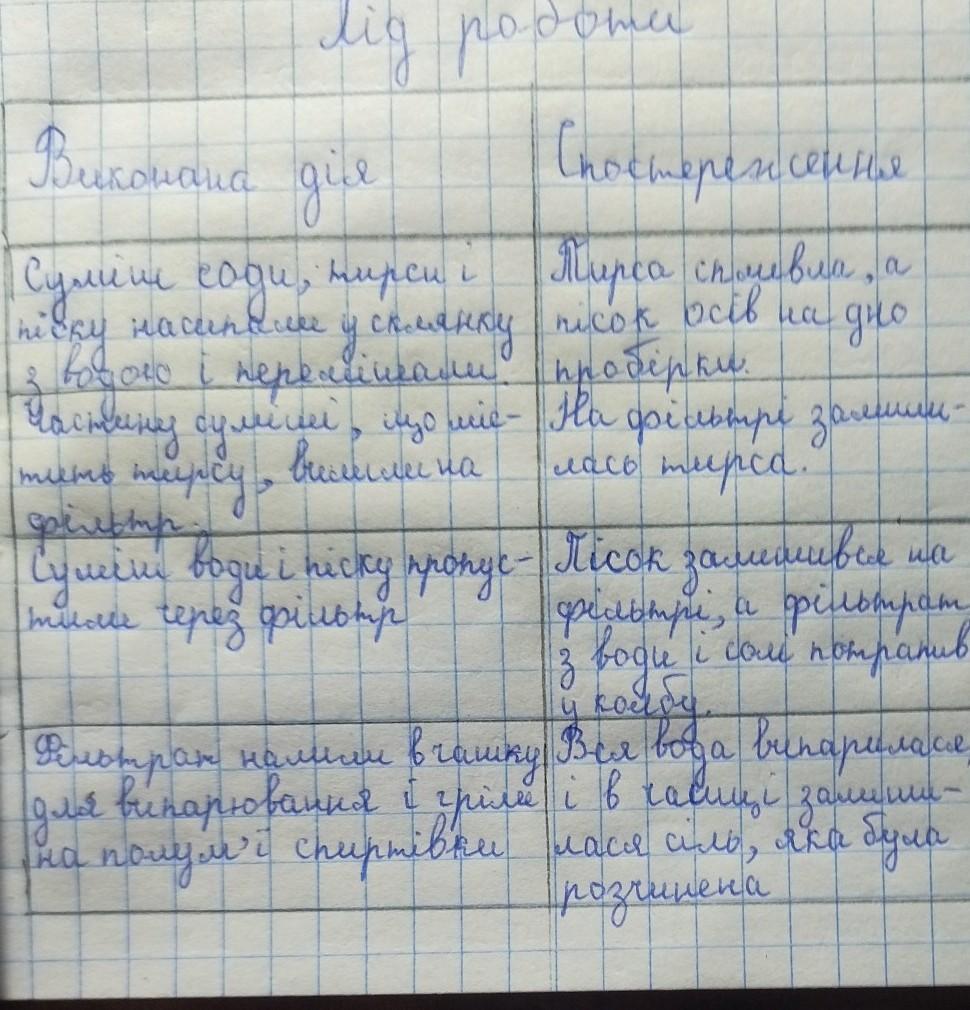 Хід роботи
Виконана дія
Спостереження
Суміш соди, тирси і
піску насипали у склянку
з водою і перемішали.
Тирса спливла, а
пісок осів на дно
пробірки.
Частину суміші, що міс-
тить тирсу, вилили на
фільтр.
На фільтрі залиши-
лась тирса.
Суміш води і піску пропус-
тили через фільтр
Пісок залишився на
фільтрі, а фільтрат
з води і солі потрапив
у колбу.
Фільтрат налили в чашку
для випарювання і гріли
на полум'ї спиртівки
Вся вода випарилася
і в чашці залиши-
лася сіль, яка була
розчинена